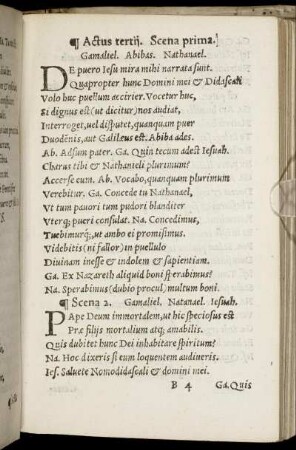 ¶ Actus tertij. Scena prima.]
Gamaliel. Abibas. Nathanael.
DE puero Iesu mira mihi narrata sunt.
Quapropter hunc Domini mei & Didascali
Volo huc puellum accirier. Vocetur huc,
Si dignus est (ut dicitur) nos audiat,
Interroget, uel disputet, quanquam puer
Duodēnis, aut Galileus est. Abiba ades.
Ab. Adsum pater. Ga. Quin tecum adest Iesuah.
Charus tibi & Nathanieli plurimum?
Accerse eum. Ab. Vocabo, quanquam plurimum
Verebitur. Ga. Concede tu Nathanael,
Vt tum pauori tum pudori blanditer
Vterq; pueri consulat. Na. Concedimus,
Tuebimurq;, ut ambo ei promisimus.
Videbitis (ni fallor) in puellulo
Diuinam inesse & indolem & sapientiam.
Ga. Ex Nazareth aliquid boni sperabimus?
Na. Sperabimus (dubio procul) multum boni.
¶ Scena 2. Gamaliel. Natanael. Iesuah.
PApe Deum immortalem, ut hic speciosus est
Præ filijs mortalium atq; amabilis.
Quis dubitet hunc Dei inhabitare spiritum?
Na. Hoc dixeris si eum loquentem audiueris.
Ies. Saluete Nomodidascali & domini mei.
B 4 Ga. Quis